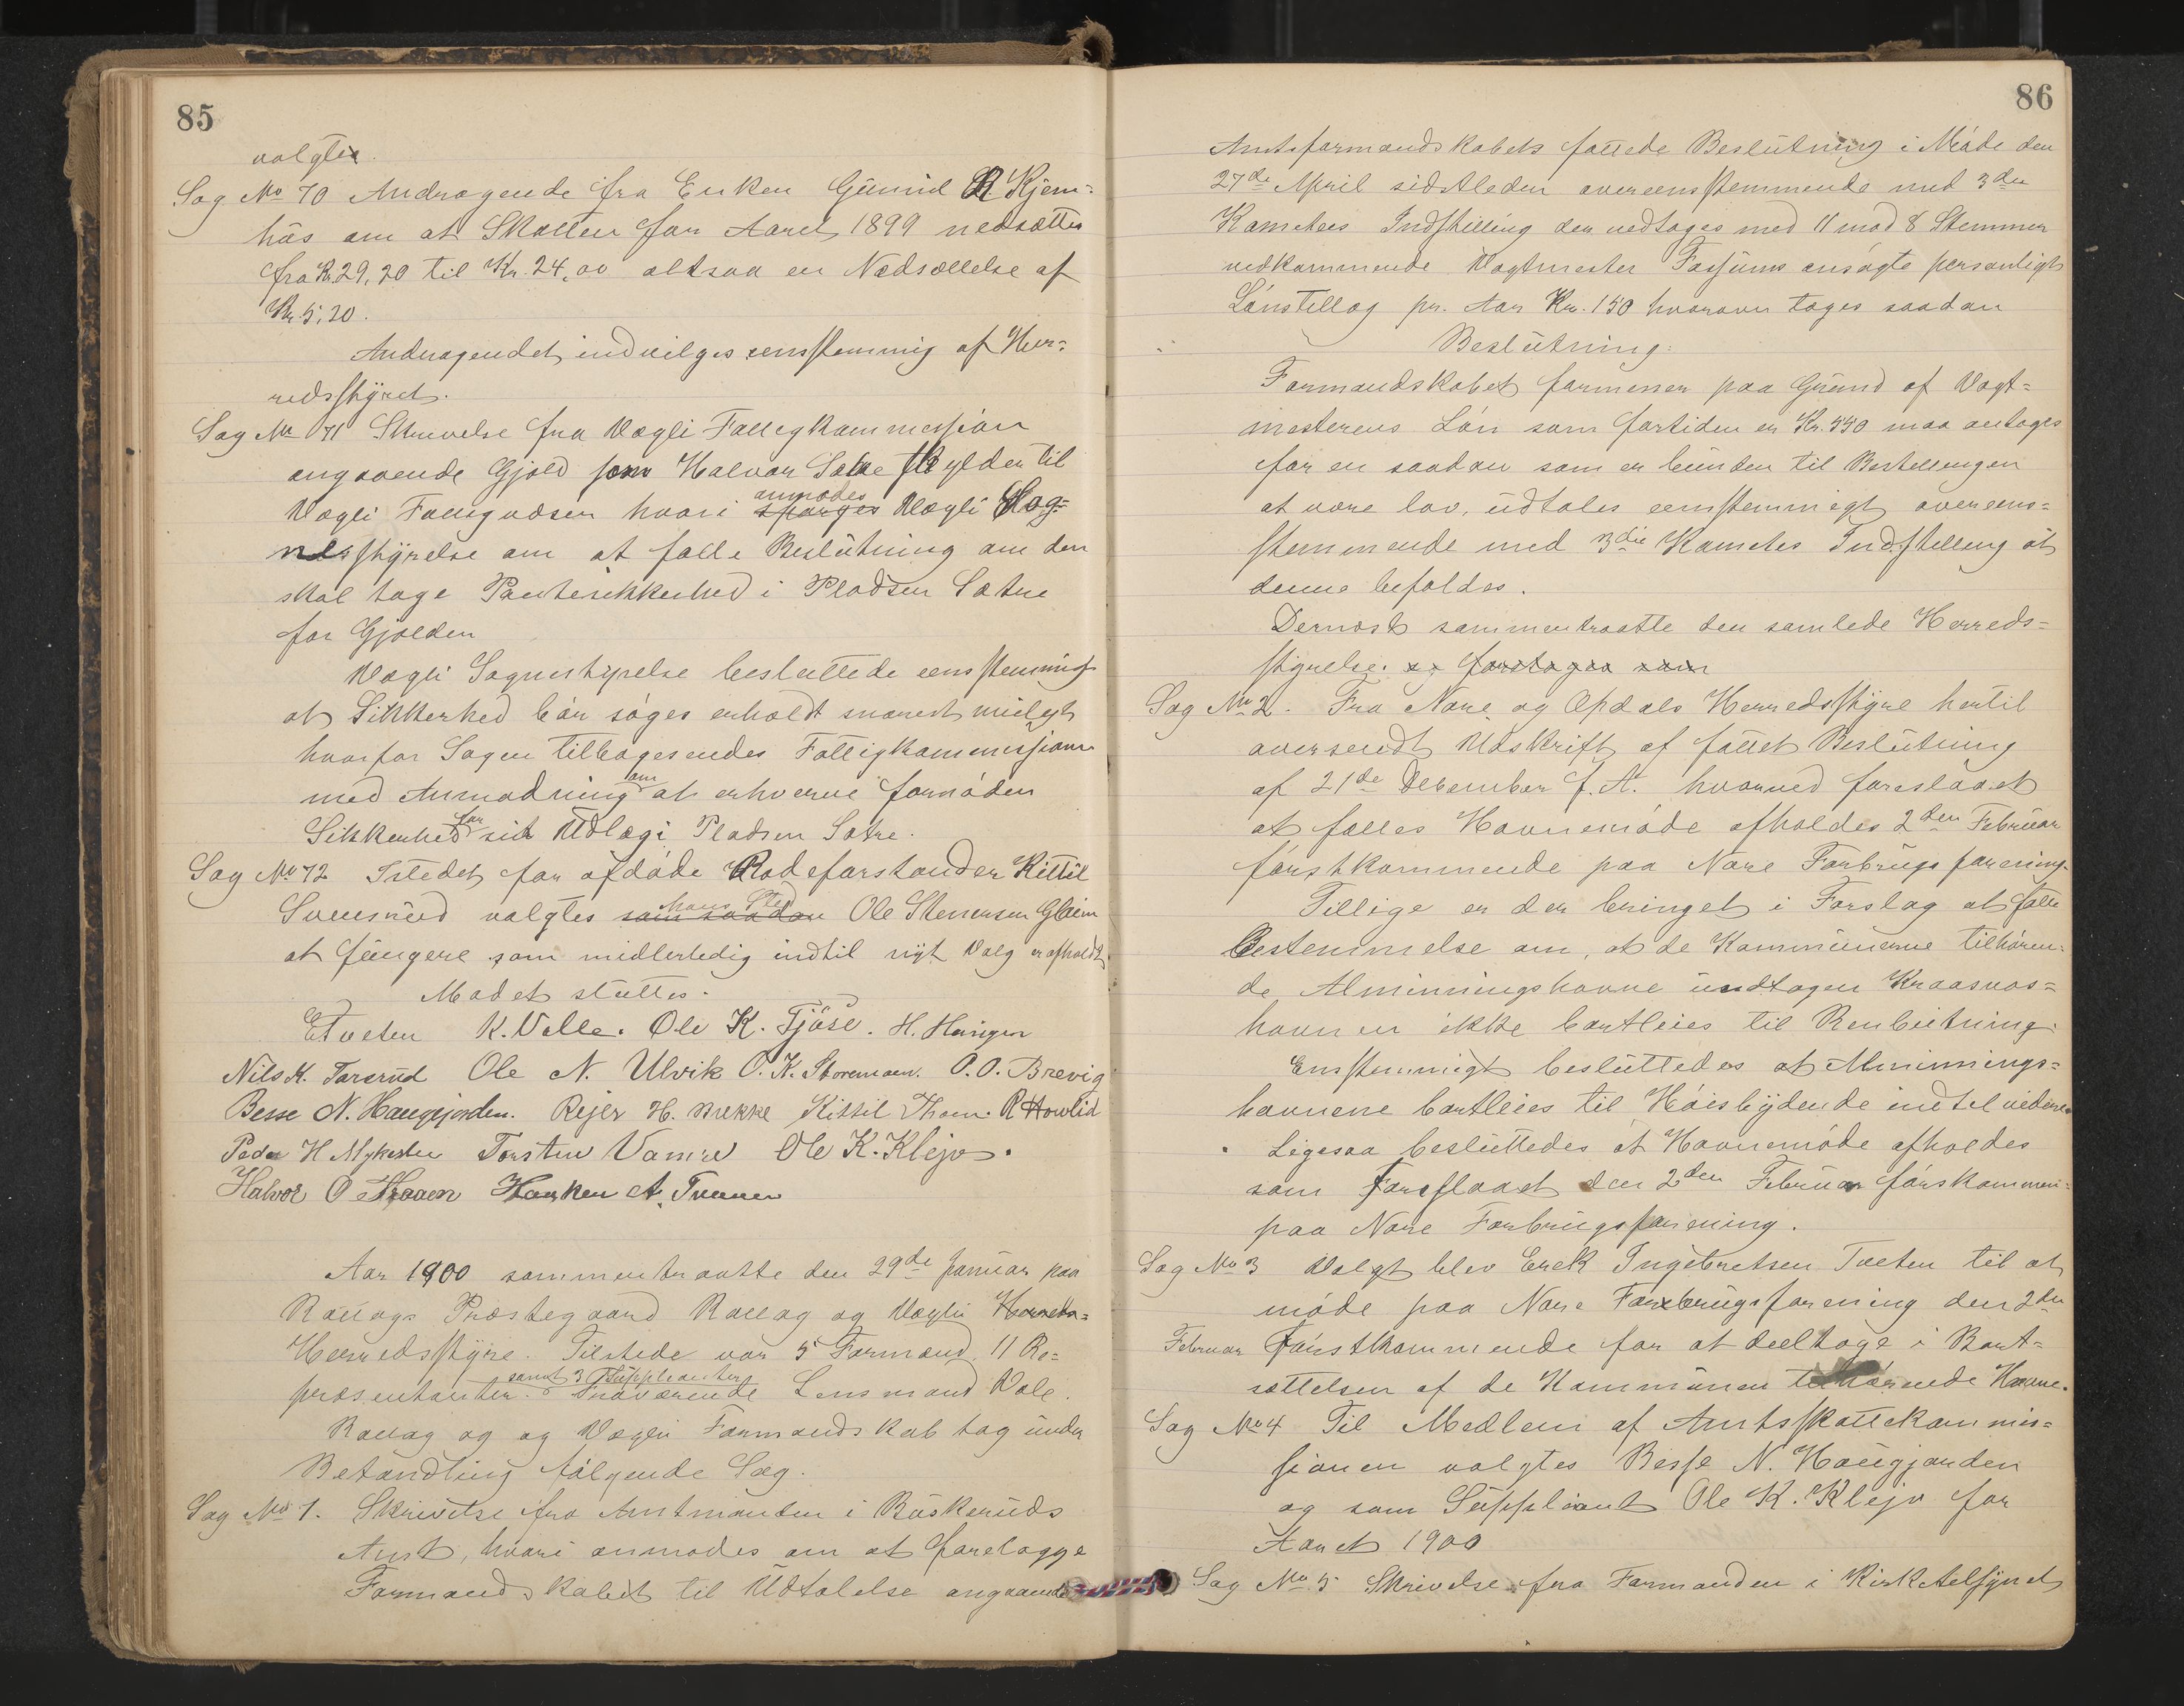 85
valgtes.
Sag No 70 Andragende fra Enken Gunild R Kjem=
hus om at Skatten for Aaret 1899 nedsættes
fra Kr. 29,20 til Kr. 24,00 altsaa en Nedsættelse af
Kr. 5,20.
Andragendet indvilges eensstemmig af Her=
redsstyret.
Sag No 71 Skrivelse fra Vægli Fattigkommission
angaaende Gjæld som Halvor Sætre skylder til
Vægli Fattigvæsen hvori spørges anmodes Vægli Sog=
nesstyrelse om at fatte Beslutning om den
skal tage Pantesikkerhed i Pladsen Sætre
for Gjælden
Vægli Sognestyrelse besluttede eensstemmigt
at Sikkerhed bør søges erholdt snarest muligt
hvorfor Sagen tilbagesendes Fattigkommissionen
med Anmodning om at erhverve fornøden
Sikkerhed for sit Udlæg i Pladsen Sætre.
Sag No 72 Istedet for afdøde Rodeforstander Kittil
Svensrud valgtes som saadan hans Sted Ole Stenersen Gløim
at fungere som midlertidig indtil nyt Valg er afholdt.
Mødet sluttes.
E Tveten K. Velle. Ole K. Tjøse. H. Haugen
Nils K. Tarsrud Ole N. Ulvik O. K. Storemoen. O. O. Brevig
Besse N. Haugjorden. Rejer H. Brekke Kittil Thom. R Howlid
Peder H Mykstu Torsten Vamre Ole K. Klejv.
Halvor O Haaen Haaken A. Traaen
Aar 1900 sammentraatte den 29de Januar paa
Rollags Præstegaard Rollag og Vægli Herreds=
Herredsstyre. Tilstede var 5 Formænd, 11 Re=
præsentanter samt 3 Suppleanter. Fraværende Lensmand Vale.
Rollag og og Vægli Formandskab tog under
Behandling følgende Sag.
Sag No 1. Skrivelse fra Amtmanden i Buskeruds
Amt, hvori anmodes om at forelægge
Formandskabet til Udtalelse angaaende
86
Amtsformandskabets fattede Beslutning i Møde den
27de April sidstleden overensstemmende med 3die
Komitees Indstilling der vedtoges med 11 mod 8 Stemmer
vedkommende Vagtmester Fossums ansøgte personligt
Lønstillæg pr. Aar Kr. 150 hvorover toges saadan
Beslutning:
Formandskabet formener paa Grund af Vagt=
mesterens Løn som fortiden er Kr. 550 maa antages
for en saadan som er bunden til Bestillingen
at være lav, udtales eenstemmigt overeens=
stemmende med 3die Komites Indstilling at
denne bifaldes.
Dernæst sammentraatte den samlede Herreds=
styrelse. og foretages som
Sag No 2. Fra Nore og Opdals Herredsstyre hertil
oversendt Udskrift af fattet Beslutning
af 21de December f. A. hvorved foreslaaet
at fælles Havnemøde afholdes 2den Februar
førstkommende paa Nore Forbrugsforening.
Tillige er der bringet i Forslag at fatte
Bestemmelse om, at de Kommunerne tilhøren=
de Alminningshavne undtagen Kraasvas=
havnen ikke bortleies til Renbeitning.
Enstemmigt besluttedes at Alminnings=
havnene bortleies til Høistbydende indtil videre.
Ligesaa besluttedes at Havnemøde afholdes
som foreslaaet den 2den Februar førskommen=
paa Nore Forbrugsforening.
Sag No 3 Valgt blev Erik Ingebretsen Tveten til at
møde paa Nore Forbrugsforening den 2den
Februar Førstkommende for at deeltage i Bort=
sættelsen af de Kommunen tilhørende Havne.
Sag No 4 Til Medlem af Amtsskattekommis=
sionen valgtes Besse N. Haugjorden
og som Suppleant Ole K. Klejv for
Aaret 1900
Sag No 5 Skrivelse fra Formanden i Kirketilsynet